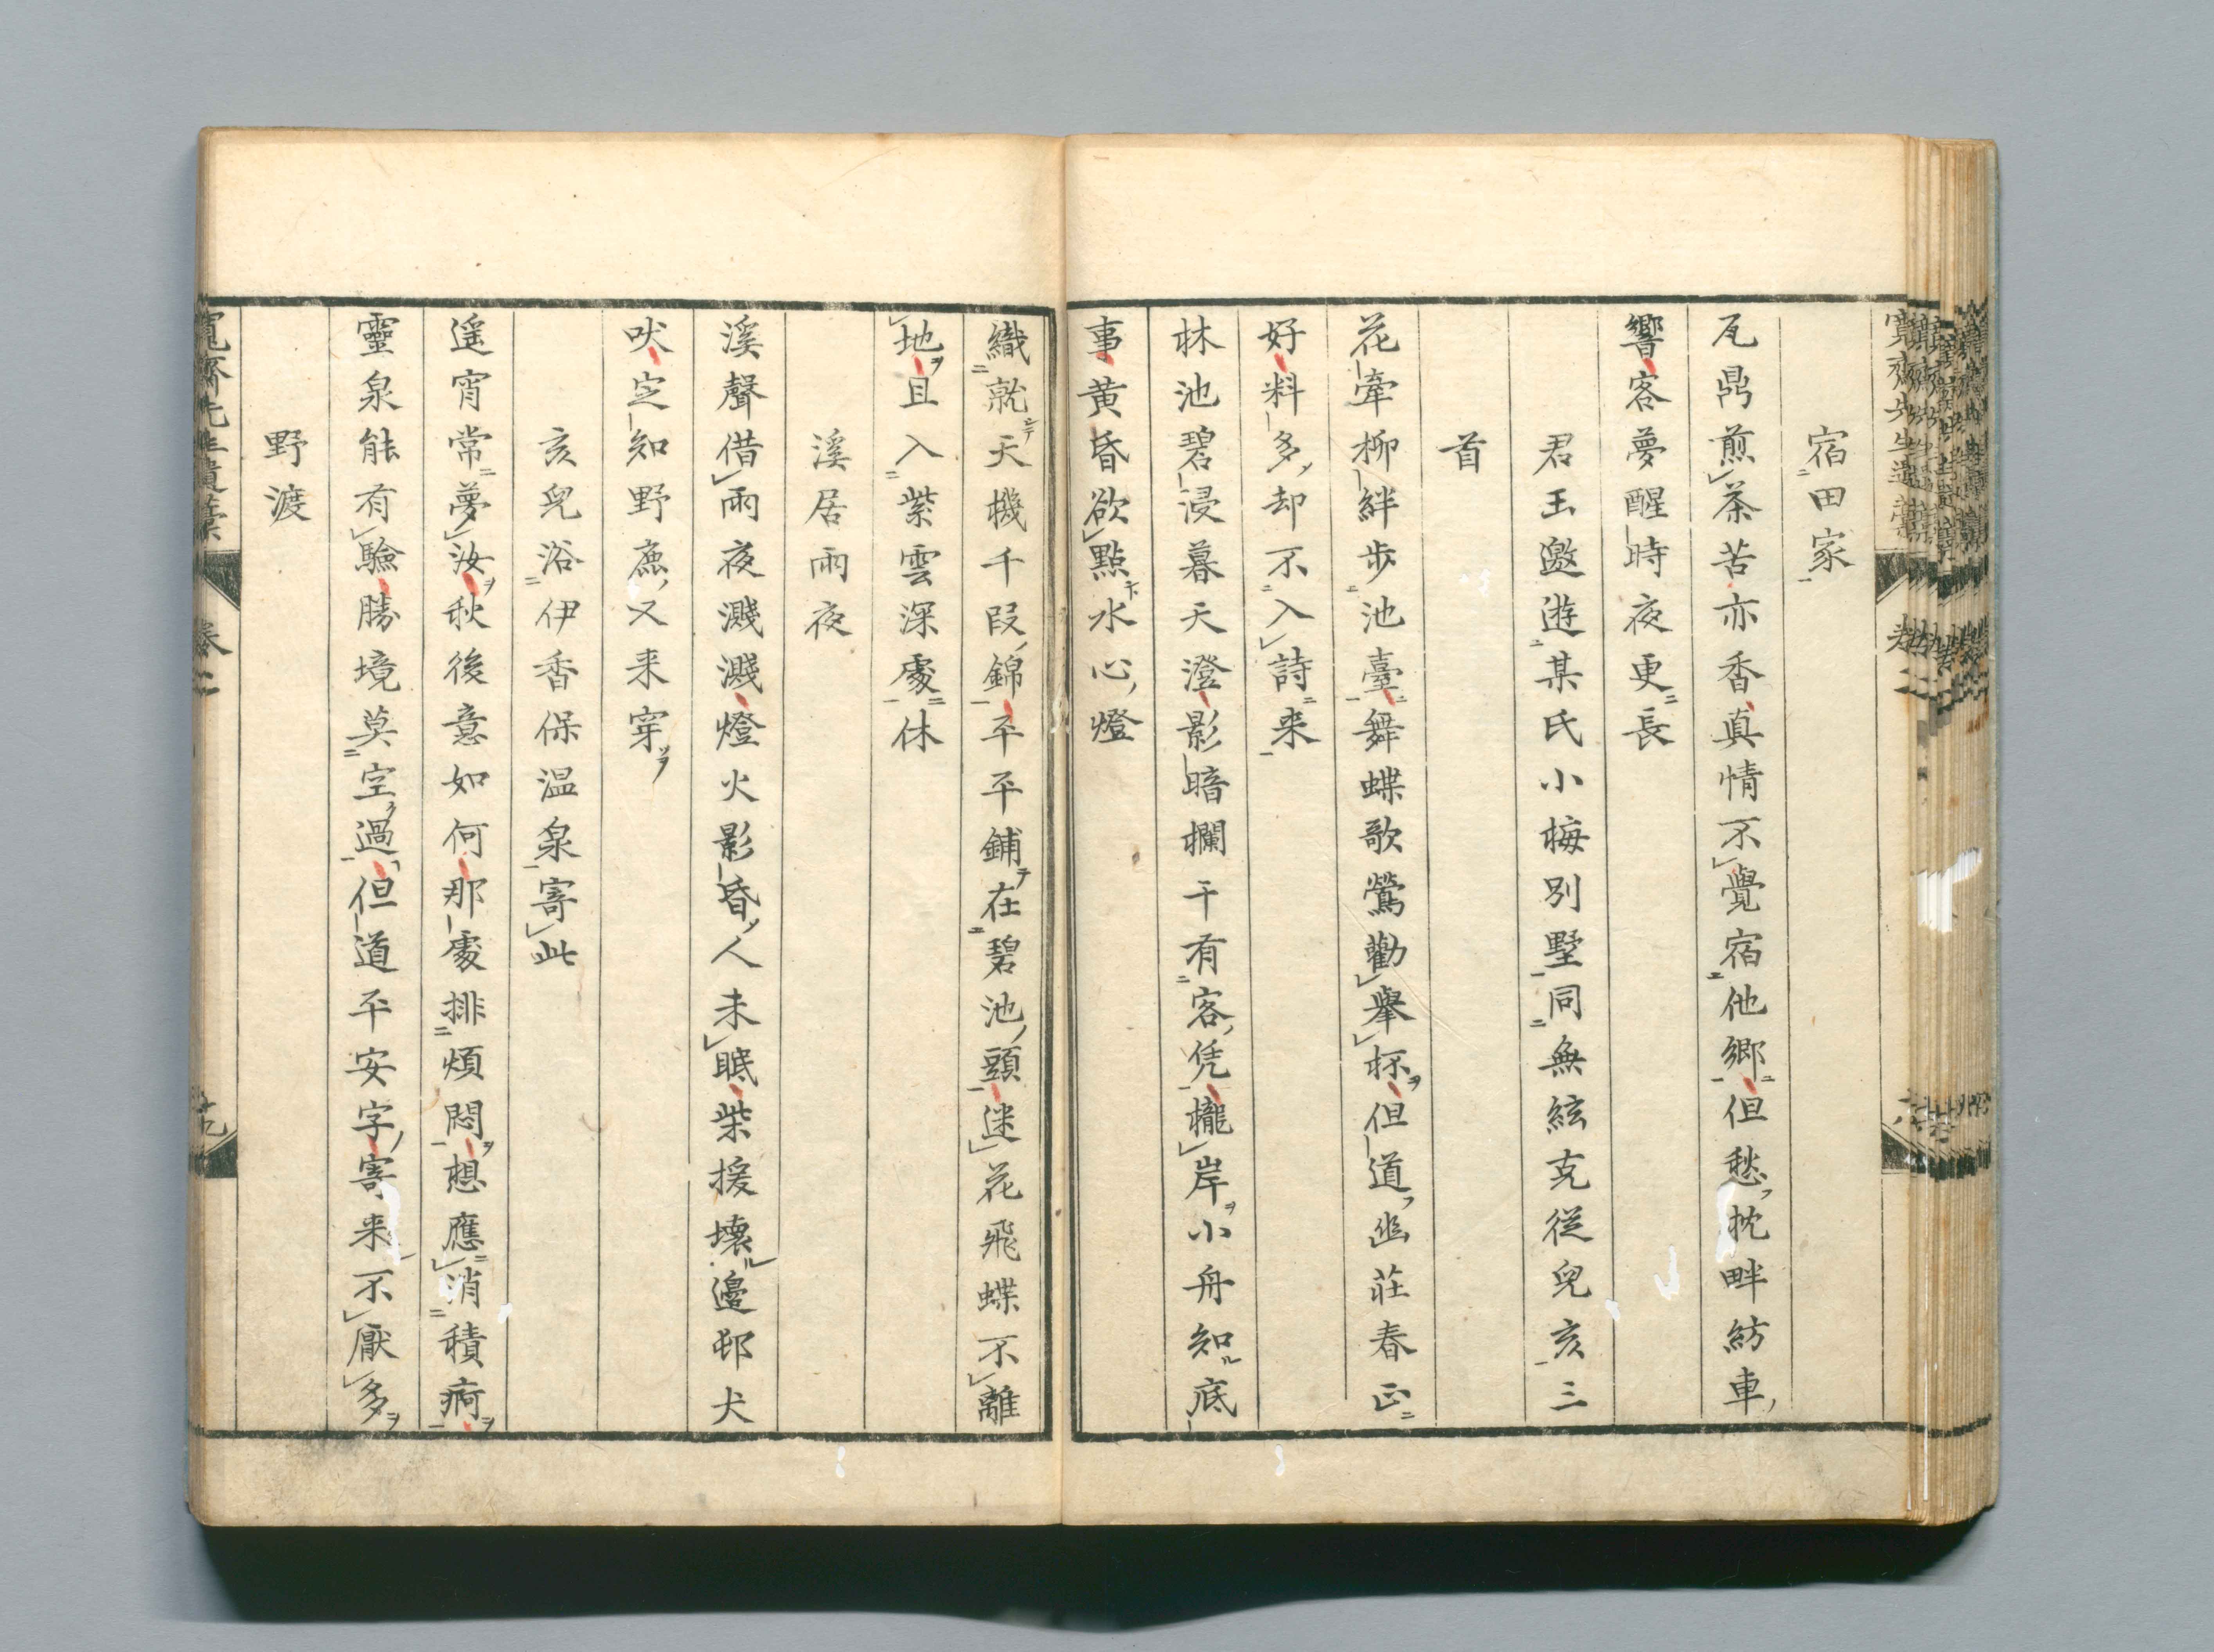 宿田家
瓦鼎煎茶苦亦香真情不覺宿他郷但愁枕畔紡車
響客夢醒時夜更長
君玉邀遊某氏小梅別墅同無絃克従兒亥三
首
花牽柳絆歩池臺舞蝶歌鶯勸擧杯但道幽荘春正
好料多却不入詩来
林池碧浸暮天澄影暗欄干有客凭櫳岸小舟知底
事黄昏欲點水心燈
織就天機千段錦平平鋪在碧池頭迷花飛蝶不離
地且入紫雲深處休
溪居雨夜
溪聲借雨夜濺濺燈火影昏人未眠柴援壊邊邨犬
吠定知野麃又来穿
亥兒浴伊香保温泉寄此
遥宵常夢汝秋後意如何那處排煩悶想應消積痾
靈泉能有驗勝境莫空過但道平安字寄来不厭多
野渡
寛齋先生遺稾
巻二
十九